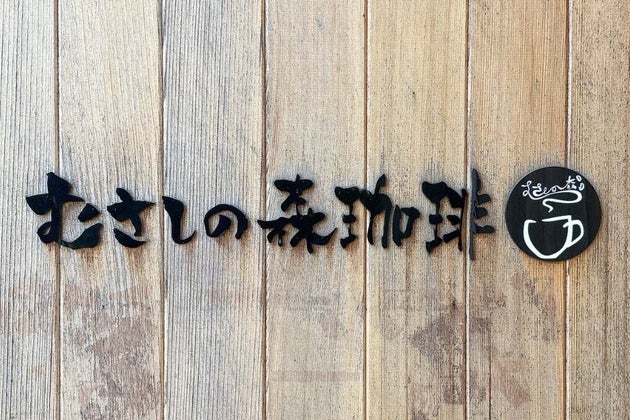 むさしの森珈琲
むさしの森